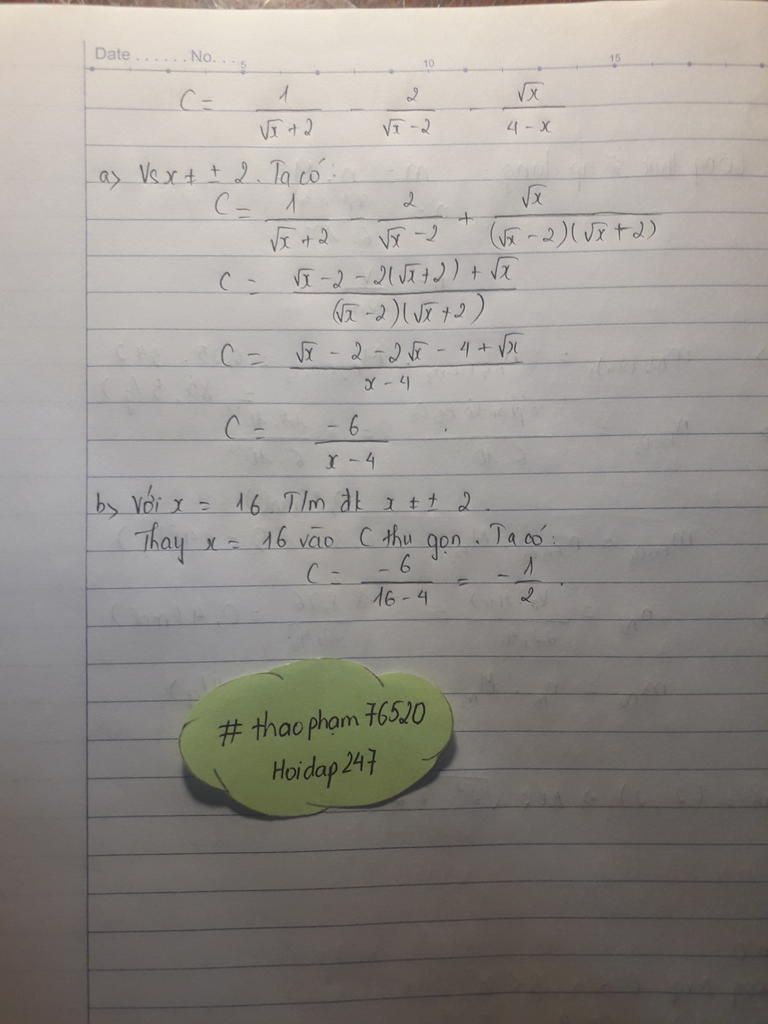 Date ...... No....
5 10 15
C = 1/(√x + 2) - 2/(√x - 2) - √x/(4 - x)
a> Vs x ≠ ± 2. Ta có:
C = 1/(√x + 2) - 2/(√x - 2) + √x/((√x - 2)(√x + 2))
C = (√x - 2 - 2(√x + 2) + √x)/((√x - 2)(√x + 2))
C = (√x - 2 - 2√x - 4 + √x)/(x - 4)
C = -6/(x - 4) .
b> Với x = 16 T/m đk x ≠ ± 2.
Thay x = 16 vào C thu gọn. Ta có:
C = -6/(16 - 4) = -1/2.
# thaophạm76520
Hoidap247